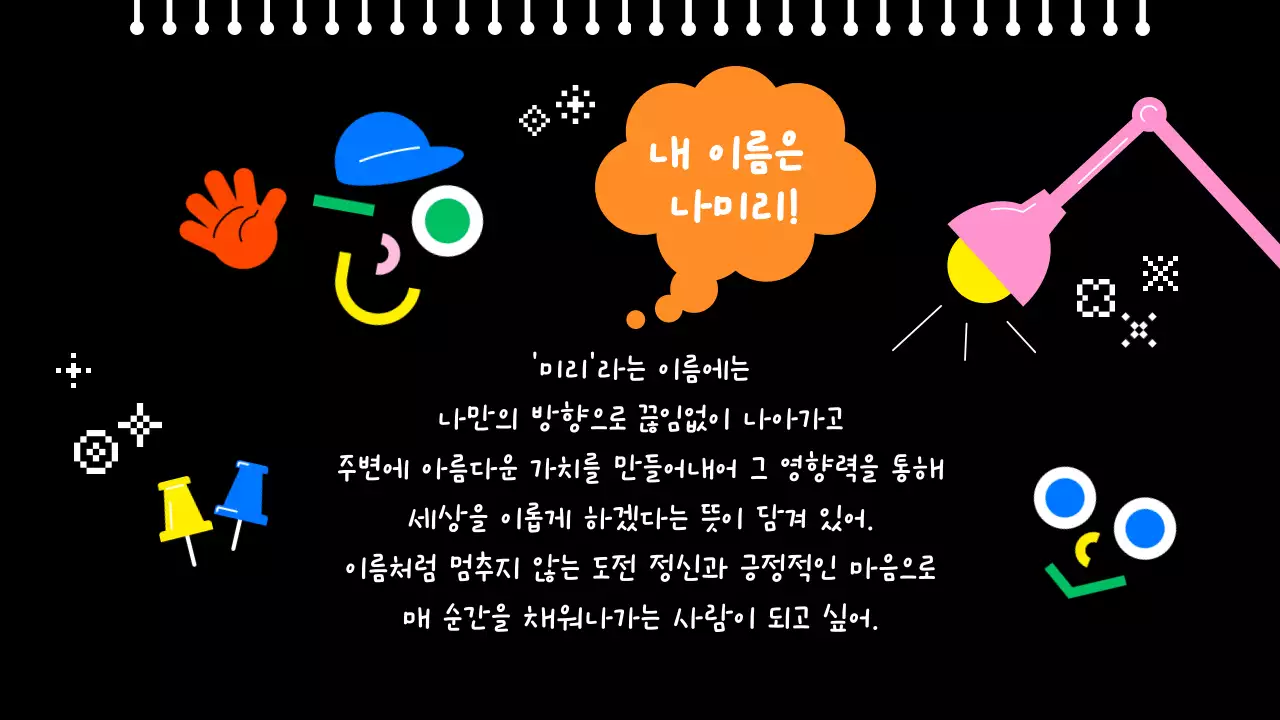 내 이름은
나미리!
'미리'라는 이름에는
나만의 방향으로 끊임없이 나아가고
주변에 아름다운 가치를 만들어내어 그 영향력을 통해
세상을 이롭게 하겠다는 뜻이 담겨 있어.
이름처럼 멈추지 않는 도전 정신과 긍정적인 마음으로
매 순간을 채워나가는 사람이 되고 싶어.